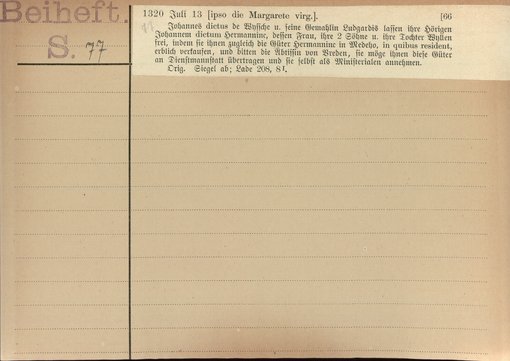 Beiheft.
S. 77
1320 Juli 13 [ipso die Margarete virg.]. [66
Johannes dictus de Wysche u. seine Gemahlin Ludgardis lassen ihre Hörigen
Johannem dictum Hermanninc, dessen Frau, ihre 2 Söhne u. ihre Tochter Wyllen
frei, indem sie ihnen zugleich die Güter Hermanninc in Medeho, in quibus resident,
erblich verkaufen, und bitten die Äbtissin von Vreden, sie möge ihnen diese Güter
an Dienstmannstatt übertragen und sie selbst als Ministerialen annehmen.
Orig. Siegel ab; Lade 208, 8